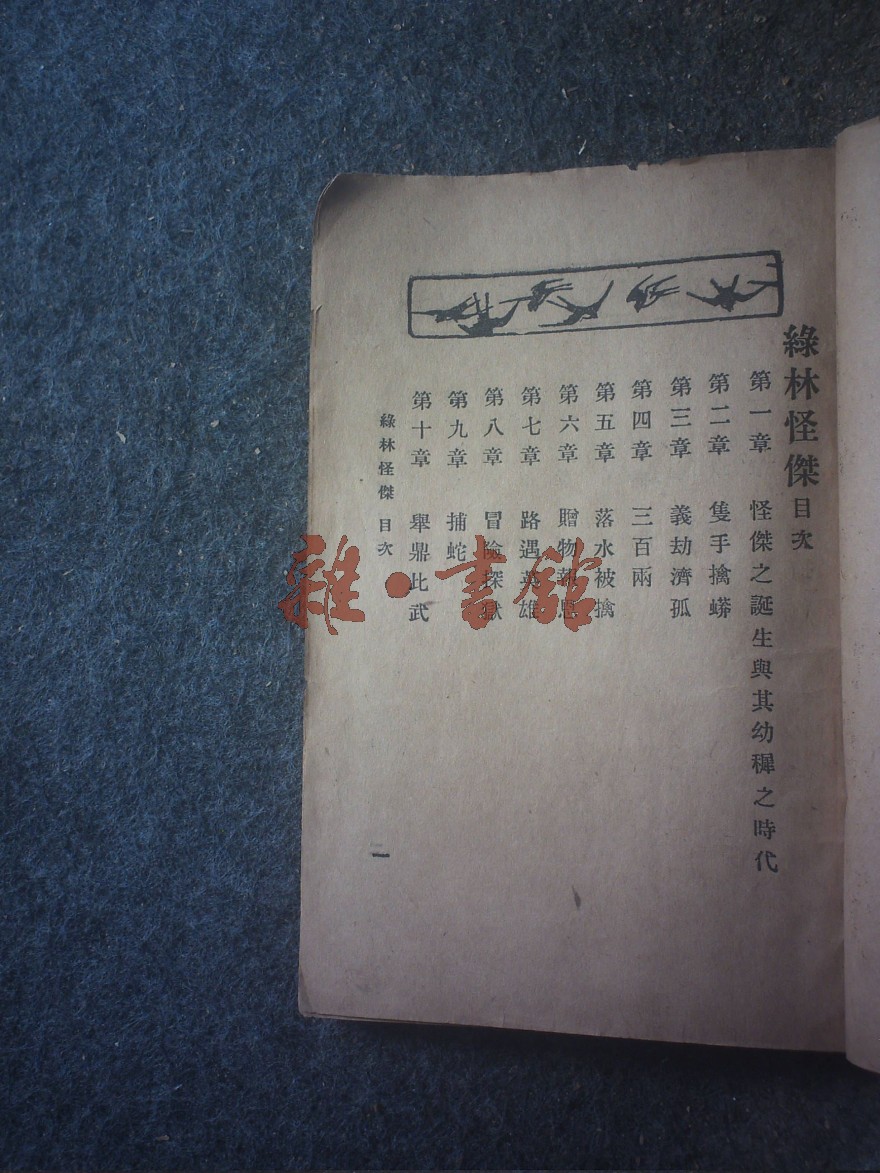 綠林怪傑目次
第一章 怪傑之誕生與其幼穉之時代
第二章 隻手擒蟒
第三章 義劫濟孤
第四章 三百兩
第五章 落水被擒
第六章 贈物報恩
第七章 路遇英雄
第八章 冒險探獄
第九章 捕蛇
第十章 舉鼎比武
綠林怪傑 目次
一
雜·書館